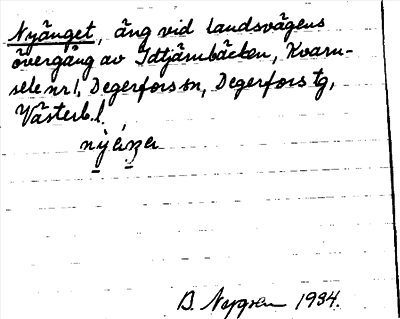 Nyänget, äng vid landsvägens
övergång av Idtjärnbäcken, Kvarn-
sele nr 1, Degerfors sn, Degerfors tg,
Västerb. l.
B. Nygren 1934.